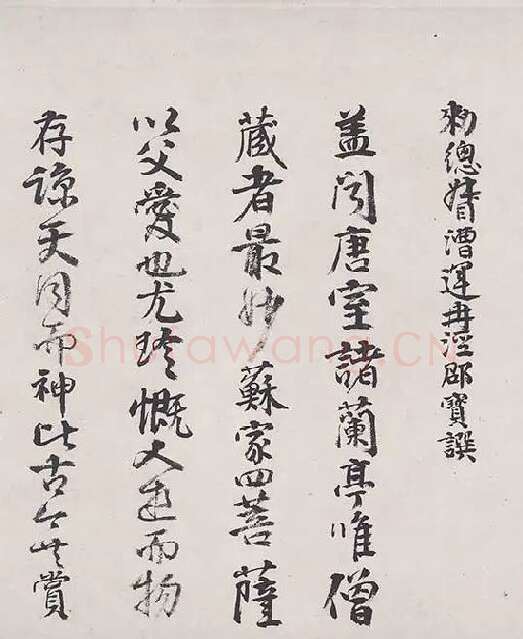 勑總督漕運冉涇邵寶譔
盖聞唐室諸蘭亭唯僧
藏者最妙蘇家四菩薩
以父愛也尤珍慨人而物
存諒天同而神比古今共賞
Shufawang.CN